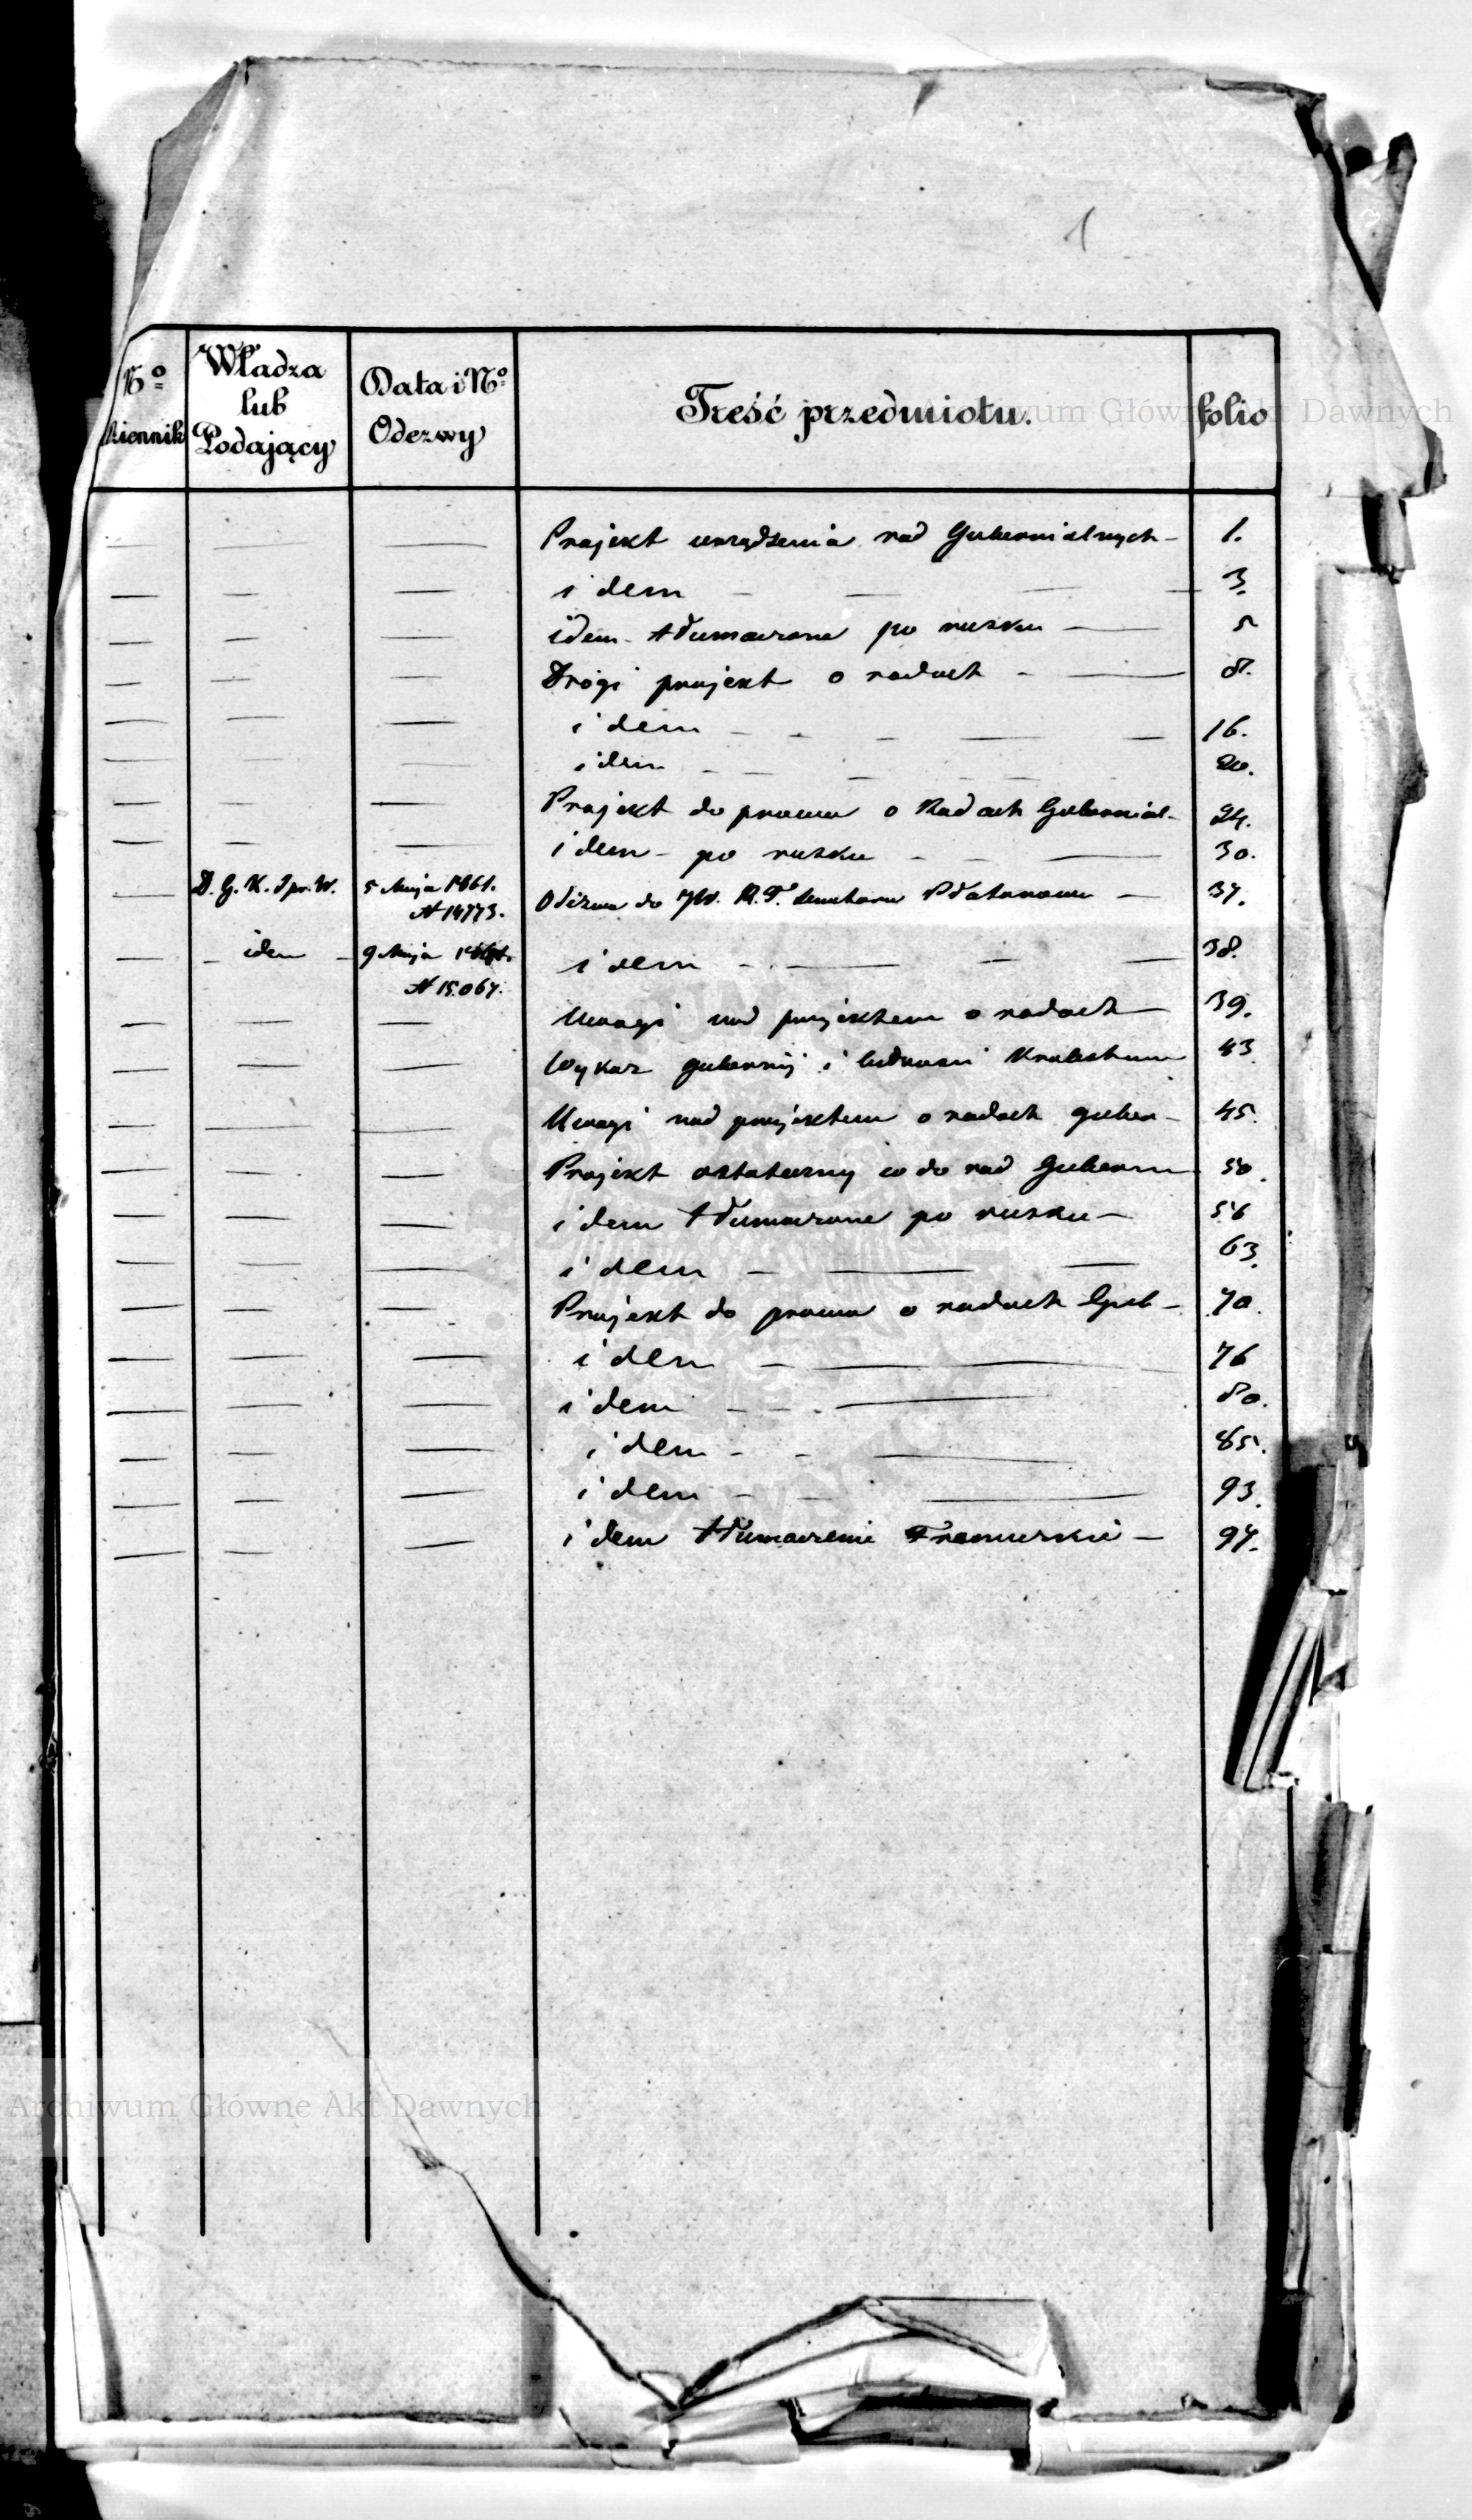 1
Nº Dziennik
Władza lub Podający
Data i Nº Odezwy
Treść przedmiotu.
folio
Projekt urządzenia rad Gubernialnych - 1.
idem - 3.
idem - tłumaczone po rusku - 5
Drógi projekt o radach - 8.
idem - 16.
idem - 20.
Projekt do prawa o Radach Gubernial- 24.
idem - po rusku - 30.
D. G. K. Spr. W. 5 Maja 1861. N 14773. Odezwa do JW. R. T. Senatora Płatonowa - 37.
idem - 9 Maja 1861. N 15.067. idem - 38.
Uwagi nad projektem o radach - 39.
Wykaz gubernij i ludności Królestwa 43
Uwagi nad projektem o radach guber- 45.
Projekt ostateczny co do rad Gubern 50.
idem tłumaczone po rusku - 56
idem - 63.
Projekt do prawa o radach Gub - 70.
idem - 76
idem - 80.
idem - 85.
idem - 93.
idem tłumaczenie Francuzkie - 97.
Archiwum Główne Akt Dawnych
Archiwum Główne Akt Dawnych